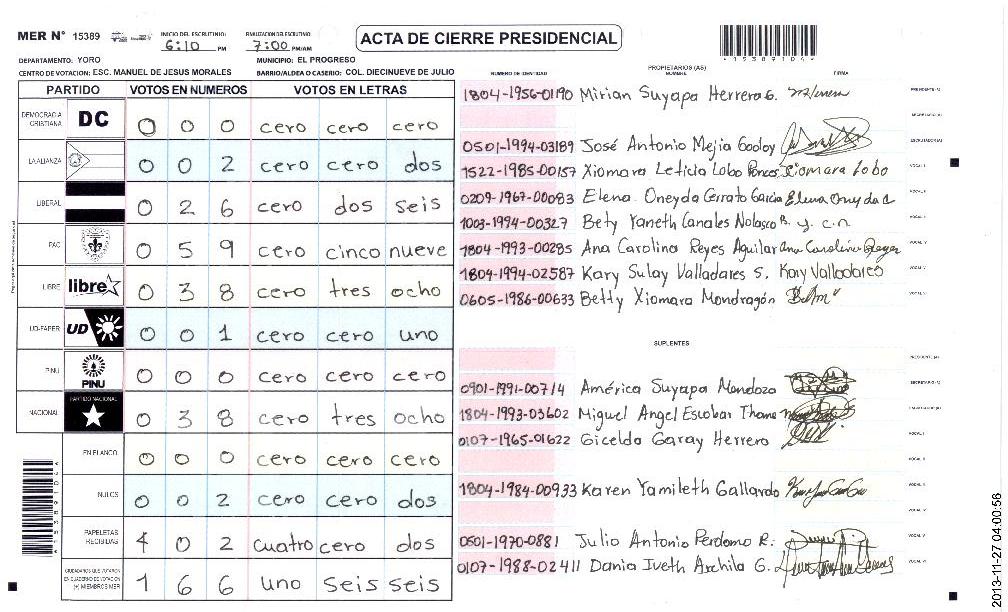 MER N° 15389 INICIO DEL ESCRUTINIO: 6:10 PM FINALIZACION DEL ESCRUTINIO: 7:00 PM/AM ACTA DE CIERRE PRESIDENCIAL
DEPARTAMENTO: YORO MUNICIPIO: EL PROGRESO
CENTRO DE VOTACION: ESC. MANUEL DE JESUS MORALES BARRIO/ALDEA O CASERIO: COL. DIECINUEVE DE JULIO
PARTIDO VOTOS EN NUMEROS VOTOS EN LETRAS
DEMOCRACIA CRISTIANA DC 0 0 0 cero cero cero
LA ALIANZA 0 0 2 cero cero dos
LIBERAL 0 2 6 cero dos seis
PAC 0 5 9 cero cinco nueve
LIBRE libre 0 3 8 cero tres ocho
UD-FAPER UD 0 0 1 cero cero uno
PINU PINU 0 0 0 cero cero cero
NACIONAL PARTIDO NACIONAL 0 3 8 cero tres ocho
EN BLANCO 0 0 0 cero cero cero
NULOS 0 0 2 cero cero dos
PAPELETAS RECIBIDAS 4 0 2 cuatro cero dos
CIUDADANOS QUE VOTARON EN CUADERNO DE VOTACION (+) MIEMBROS MER 1 6 6 uno seis seis
NUMERO DE IDENTIDAD PROPIETARIOS (AS) NOMBRE FIRMA
1804-1956-01190 Mirian Suyapa Herrera G. PRESIDENTE (A)
SECRETARIO (A)
0501-1994-03189 José Antonio Mejia Godoy ESCRUTADOR (A)
1522-1985-00157 Xiomara Leticia Lobo Ponces Xiomara Lobo VOCAL I
0209-1967-00083 Elena Oneyda Cerrato Garcia Elena Oneyda C VOCAL II
1003-1994-00327 Bety Yaneth Canales Nolasco B. y. c.n VOCAL III
1804-1993-00285 Ana Carolina Reyes Aguilar Ana Carolina Reyes VOCAL IV
1804-1994-02587 Kary Sulay Valladares S. Kary Valladares VOCAL V
0605-1986-00633 Betty Xiomara Mondragón VOCAL VI
SUPLENTES
PRESIDENTE (A)
0901-1991-00714 América Suyapa Mendoza SECRETARIO (A)
1804-1993-03602 Miguel Angel Escobar Thoms ESCRUTADOR (A)
0107-1965-01622 Gicelda Garay Herrero VOCAL I
1804-1984-00933 Karen Yamileth Gallardo VOCAL III
0501-1970-0881 Julio Antonio Perdomo R. VOCAL V
0107-1988-02411 Dania Iveth Archila G. VOCAL VI
2013-11-27 04:00:56